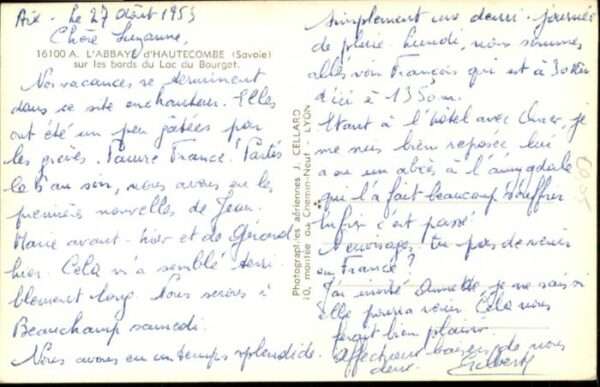 Aix - Le 27 Août 1953
Chère Suzanne,
16100 A. L'ABBAYE d'HAUTECOMBE (Savoie)
sur les bords du Lac du Bourget.
Nos vacances se terminent
dans ce site enchanteur. Elles
ont été un peu gâtées par
les grèves. Pauvre France! Partis
le 5 au soir, nous avons eu les
premières nouvelles de Jean
Marie avant-hier et de Gérard
hier. Cela m'a semblé terri
blement long. Nous serons à
Beauchamp samedi.
Nous avons eu un temps splendide.
Photographies aériennes J. CELLARD
10, montée du Chemin-Neuf - LYON
Simplement une demi-journée
de pluie. Lundi, nous sommes
allés voir François qui est à 30 km
d'ici à 1350m.
Etant à l'hôtel avec je
me suis bien reposée, lui
a eu un abcès à l'amygdale
qui l'a fait beaucoup souffrir
Enfin c'est passé.
N'envisages-tu pas de venir
en France?
J'ai invité Annette je ne sais si
elle pourra venir. Cela nous
ferait bien plaisir.
Affectueux baisers de nous
deux. Gilberte